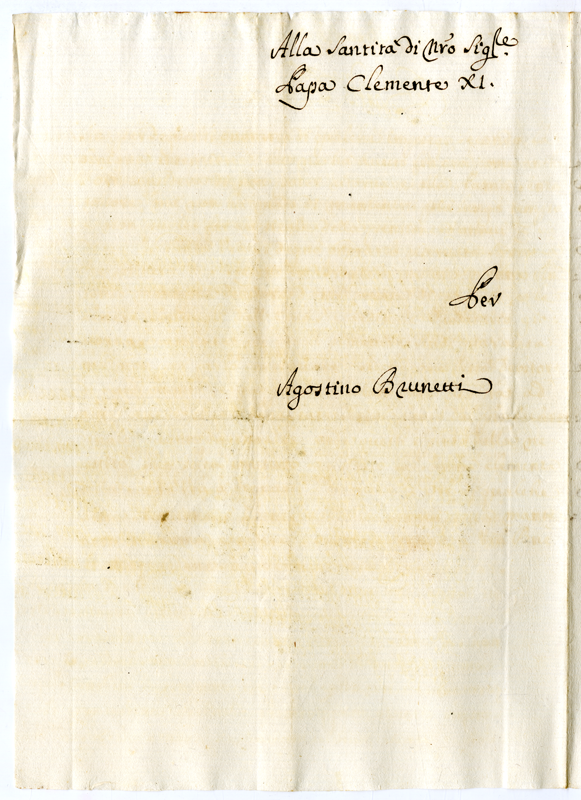 Alla Santità di Nro Sig.re
Papa Clemente XI.
Per
Agostino Brunetti